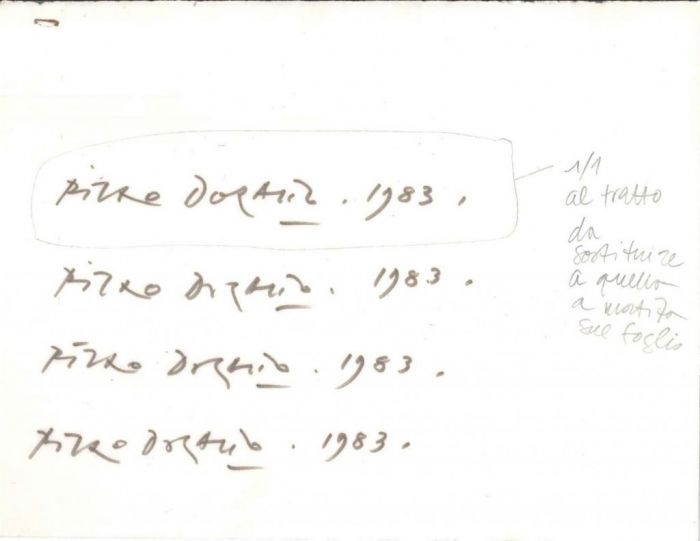 Piero Dorazio . 1983 .
1/1
al tratto
da
sostituire
a quella
a matita
sul foglio
Piero Dorazio . 1983 .
Piero Dorazio . 1983 .
Piero Dorazio . 1983 .